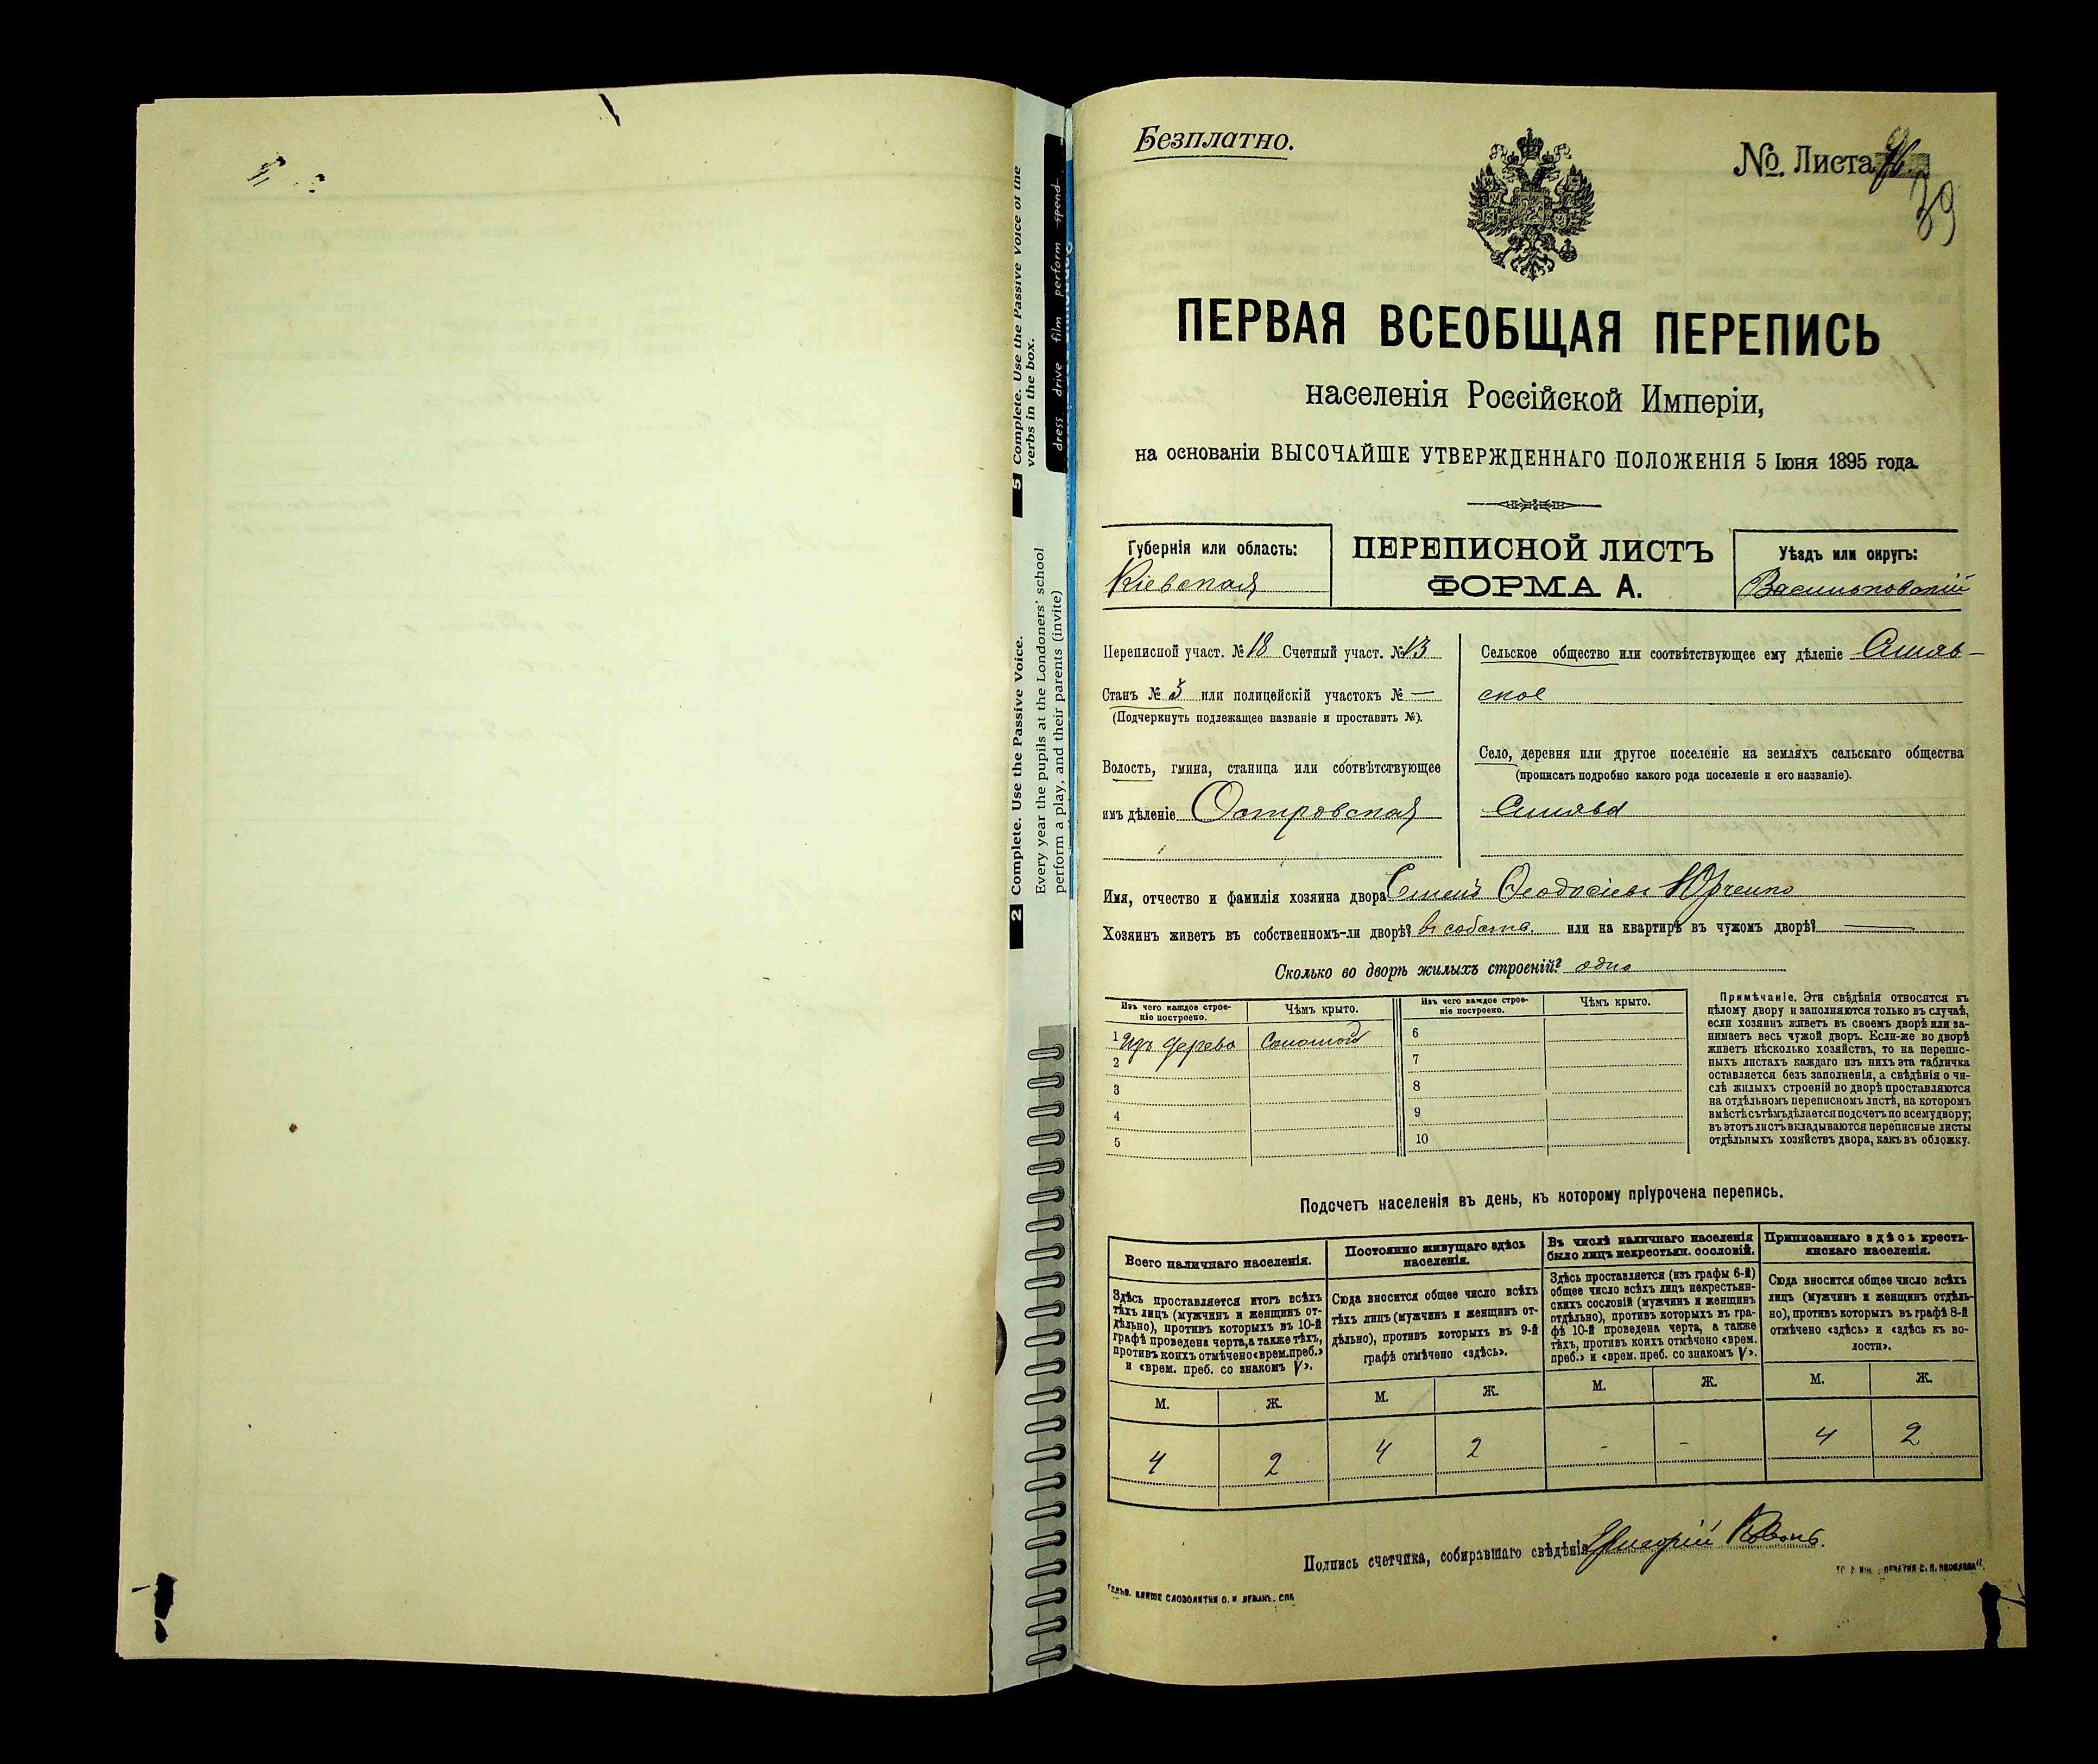 5 Complete. Use the Passive Voice of the
verbs in the box.
dress drive film perform spend
2 Complete. Use the Passive Voice.
Every year the pupils at the Londoners' school
perform a play, and their parents (invite)
Безплатно.
№. Листа
39
ПЕРВАЯ ВСЕОБЩАЯ ПЕРЕПИСЬ
населенія Россійской Имперіи,
на основаніи ВЫСОЧАЙШЕ УТВЕРЖДЕННАГО ПОЛОЖЕНІЯ 5 Іюня 1895 года.
Губернія или область:
Кіевская
ПЕРЕПИСНОЙ ЛИСТЪ
ФОРМА А.
Уѣздъ или округъ:
Васильковскій
Переписной участ. № 18 Счетный участ. № 13
Станъ № 3 или полицейскій участокъ № —
(Подчеркнуть подлежащее названіе и проставить №).
Волость, гмина, станица или соотвѣтствующее
имъ дѣленіе Островская
Сельское общество или соотвѣтствующее ему дѣленіе Синяв-
ское
Село, деревня или другое поселеніе на земляхъ сельскаго общества
(прописать подробно какого рода поселеніе и его названіе).
Синява
Имя, отчество и фамилія хозяина двора Семенъ Ѳеодосіевъ Юрченко
Хозяинъ живетъ въ собственномъ-ли дворѣ? въ собств. или на квартирѣ въ чужомъ дворѣ? —
Сколько во дворѣ жилыхъ строеній? одно
Изъ чего каждое строе-
ніе построено.
Чѣмъ крыто.
Изъ чего каждое строе-
ніе построено.
Чѣмъ крыто.
1 Изъ дерева Соломой
2
3
4
5
6
7
8
9
10
Примѣчаніе. Эти свѣдѣнія относятся къ
цѣлому двору и заполняются только въ случаѣ,
если хозяинъ живетъ въ своемъ дворѣ или за-
нимаетъ весь чужой дворъ. Если-же во дворѣ
живетъ нѣсколько хозяйствъ, то на перепис-
ныхъ листахъ каждаго изъ нихъ эта табличка
оставляется безъ заполненія, а свѣдѣнія о чи-
слѣ жилыхъ строеній во дворѣ проставляются
на отдѣльномъ переписномъ листѣ, на которомъ
вмѣстѣ съ тѣмъ дѣлается подсчетъ по всему двору;
въ этотъ листъ вкладываются переписные листы
отдѣльныхъ хозяйствъ двора, какъ въ обложку.
Подсчетъ населенія въ день, къ которому пріурочена перепись.
Всего наличнаго населенія.
Здѣсь проставляется итогъ всѣхъ
тѣхъ лицъ (мужчинъ и женщинъ от-
дѣльно), противъ которыхъ въ 10-й
графѣ проведена черта, а также тѣхъ,
противъ коихъ отмѣчено «врем. преб.»
и «врем. преб. со знакомъ V».
М. Ж.
4 2
Постоянно живущаго здѣсь
населенія.
Сюда вносится общее число всѣхъ
тѣхъ лицъ (мужчинъ и женщинъ от-
дѣльно), противъ которыхъ въ 9-й
графѣ отмѣчено «здѣсь».
М. Ж.
4 2
Въ числѣ наличнаго населенія
было лицъ некрестьян. сословій.
Здѣсь проставляется (изъ графы 6-й)
общее число всѣхъ лицъ некрестьян-
скихъ сословій (мужчинъ и женщинъ
отдѣльно), противъ которыхъ въ гра-
фѣ 10-й проведена черта, а также
тѣхъ, противъ коихъ отмѣчено «врем.
преб.» и «врем. преб. со знакомъ V».
М. Ж.
- -
Приписаннаго здѣсь кресть-
янскаго населенія.
Сюда вносится общее число всѣхъ
лицъ (мужчинъ и женщинъ отдѣль-
но), противъ которыхъ въ графѣ 8-й
отмѣчено «здѣсь» и «здѣсь къ во-
лости».
М. Ж.
4 2
Подпись счетчика, собиравшаго свѣдѣнія Григорій
КЛИШЕ СЛОВОЛИТНИ О. И. ЛЕМАНЪ. СПБ
ПЕЧАТНЯ С. П. ЯКОВЛЕВА"